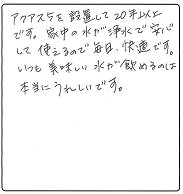 アクアス5を設置して20年以上
です。家中の水が浄水で安心
して使えるので毎日、快適です。
いつも美味しい水が飲めるのは
本当にうれしいです。